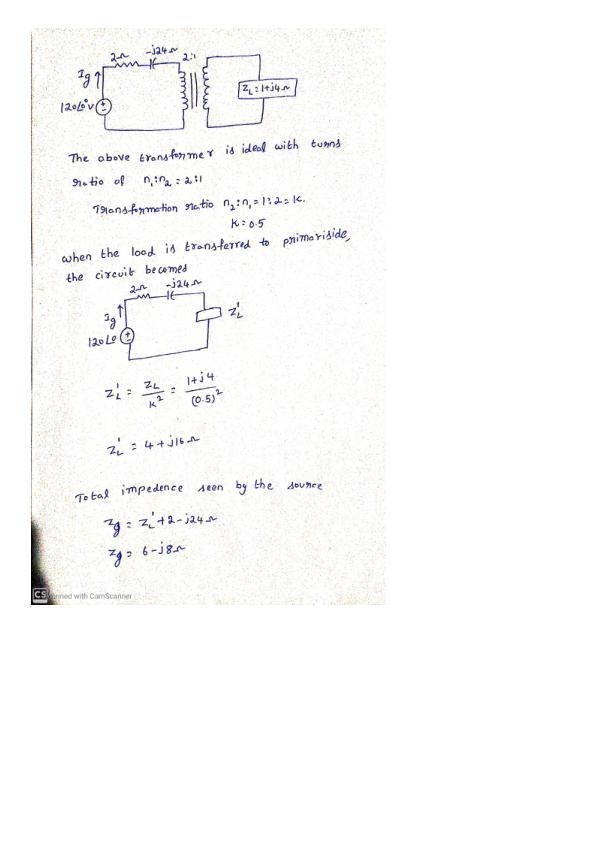 2Ω -j24Ω 2:1
Ig
120∠0°V
ZL = 1+j4Ω
The above transformer is ideal with turns
ratio of n1:n2 = 2:1
Transformation ratio n2:n1 = 1:2 = K.
K = 0.5
when the load is transferred to primariside,
the circuit becomes
2Ω -j24Ω
Ig
120∠0
ZL'
ZL' = ZL / K² = 1+j4 / (0.5)²
ZL' = 4+j16Ω
Total impedence seen by the source
Zg = ZL' + 2 - j24Ω
Zg = 6-j8Ω
CS nned with CamScanner